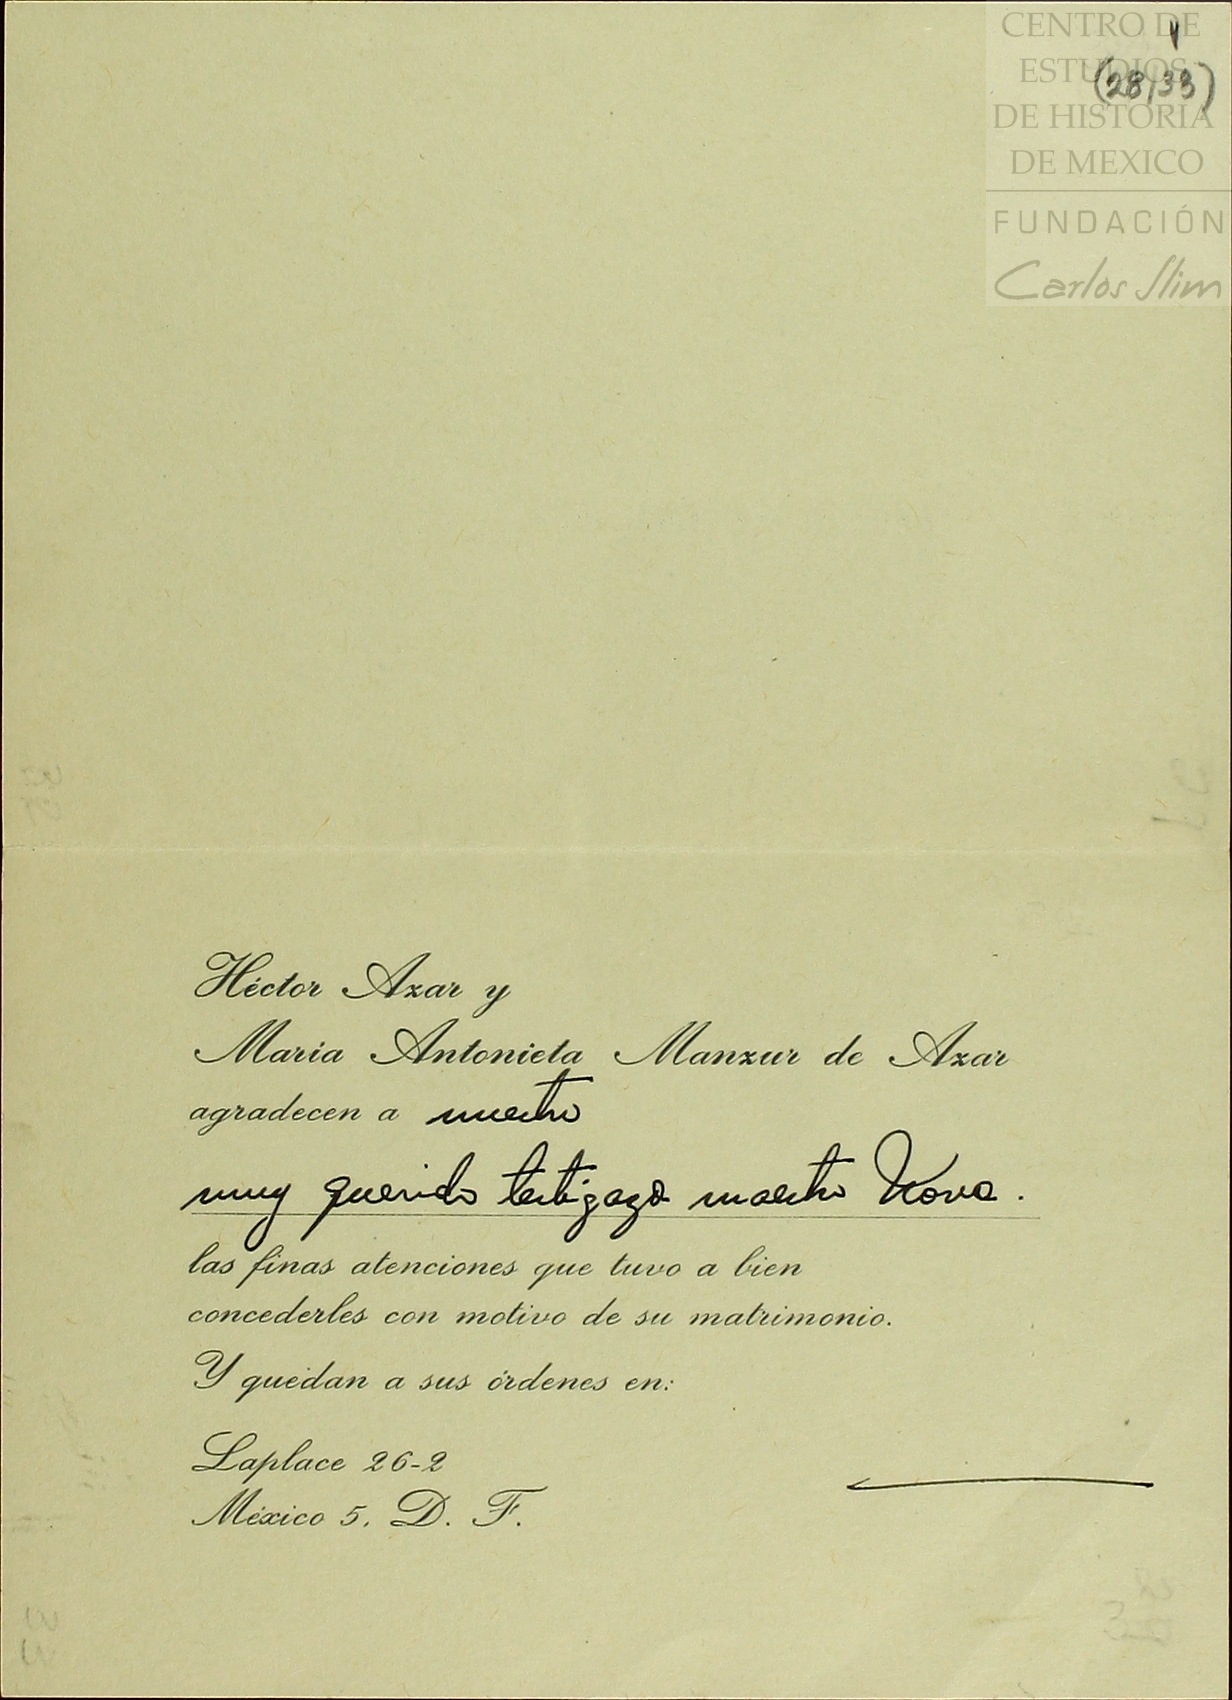 CENTRO DE
ESTUDIOS
DE HISTORIA
DE MEXICO
FUNDACIÓN
Carlos Slim
(28,33)
Héctor Azar y
María Antonieta Manzur de Azar
agradecen a nuestro
muy querido testigazo maestro
las finas atenciones que tuvo a bien
concederles con motivo de su matrimonio.
Y quedan a sus órdenes en:
Laplace 26-2
México 5, D. F.